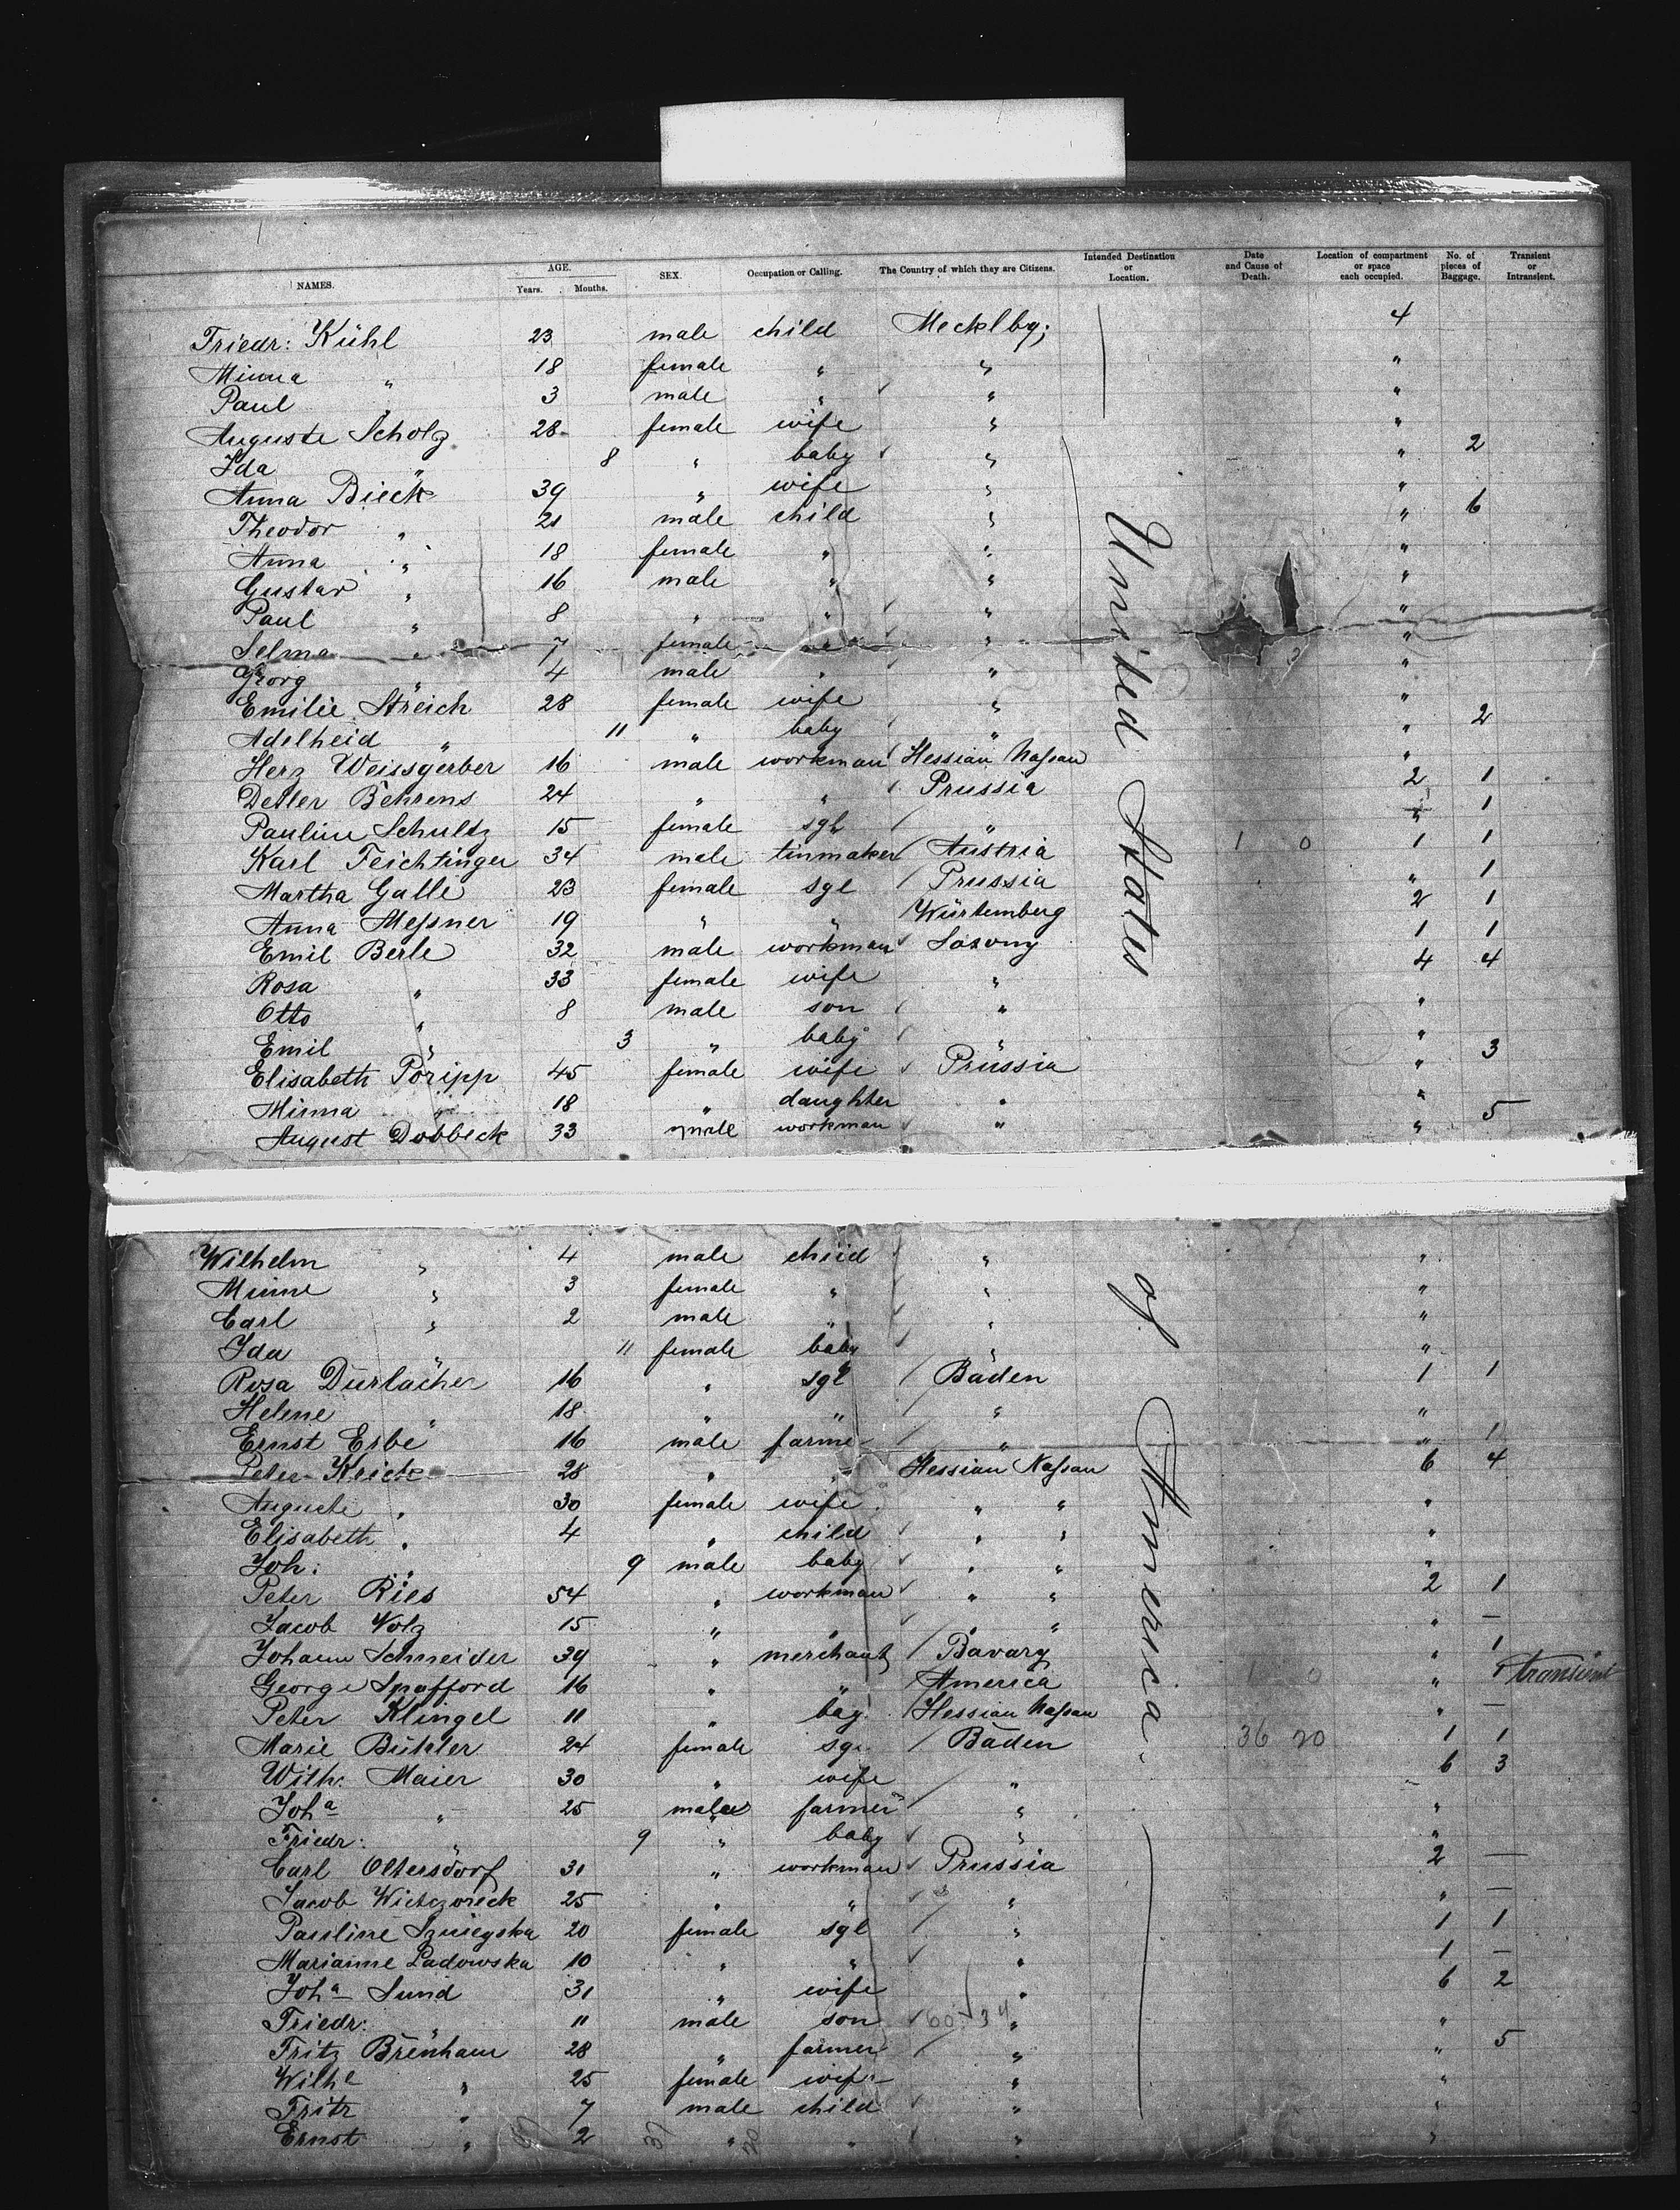 NAMES. AGE. Years. Months. SEX. Occupation or Calling. The Country of which they are Citizens. Intended Destination or Location. Date and Cause of Death. Location of compartment or space each occupied. No. of pieces of Baggage. Transient or Intransient.
Friedr: Kühl 23 male child Mecklbg; 4
Minna " 18 female " " "
Paul " 3 male " " "
Auguste Scholz 28 female wife " "
Ida " 8 " baby " " 2
Anna Bieck 39 " wife " "
Theodor " 21 male child " " 6
Anna " 18 female " " "
Gustav " 16 male " " "
Paul " 8 " " " "
Selma " 7 female " " "
Georg " 4 male " " "
Emilie Streich 28 female wife " "
Adelheid " 11 " baby " " 2
Herz Weissgerber 16 male workman Hessian Nassau "
Detler Behrens 24 " " Prussia 2 1
Pauline Schultz 15 female sgl " " 1
Karl Feichtinger 34 male tinmaker Austria 1 0 1 1
Martha Galle 23 female sgl Prussia " 1
Anna Messner 19 " " Würtemberg 2 1
Emil Berle 32 male workman Saxony 1 1
Rosa " 33 female wife " 4 4
Otto " 8 male son " "
Emil " 3 " baby " "
Elisabeth Poripp 45 female wife Prussia " 3
Minna " 18 " daughter " "
August Dobbeck 33 male workman " " 5
United States
Wilhelm " 4 male child " "
Minne " 3 female " " "
Carl " 2 male " " "
Ida " 11 female baby " "
Rosa Durlacher 16 " sgl Baden 1 1
Helene " 18 " " " "
Ernst Erbe 16 male farme " " 1
Peter Krick 28 " " Hessian Nassau 6 4
Auguste " 30 female wife " " "
Elisabeth " 4 " child " " "
Joh: " 9 male baby " " "
Peter Ries 54 " workman " " 2 1
Jacob Volz 15 " " " " " —
Johann Schneider 39 " merchant Bavary " 1
George Spafford 16 " " America 1 0 " 1 transient
Peter Klingel 11 " boy Hessian Nassau " —
Marie Bühler 24 female sgl Baden 36 20 1 1
Wilh: Maier 30 " wife " 6 3
Joha " 25 male farmer " "
Friedr: " 9 " baby " "
Carl Oltersdorf 31 " workman Prussia 2 —
Jacob Wietczoreck 25 " " " " —
Pauline 20 female sgl " 1 1
Marianne Ladowska 10 " " " 1 —
Joha Sund 31 " wife " 6 2
Friedr: " 11 male son 60 34 " "
Fritz Brenhaur 28 " farmer " " 5
Wilhe " 25 female wife " "
Fritz " 7 male child " "
Ernst " 2 " " " "
of America.